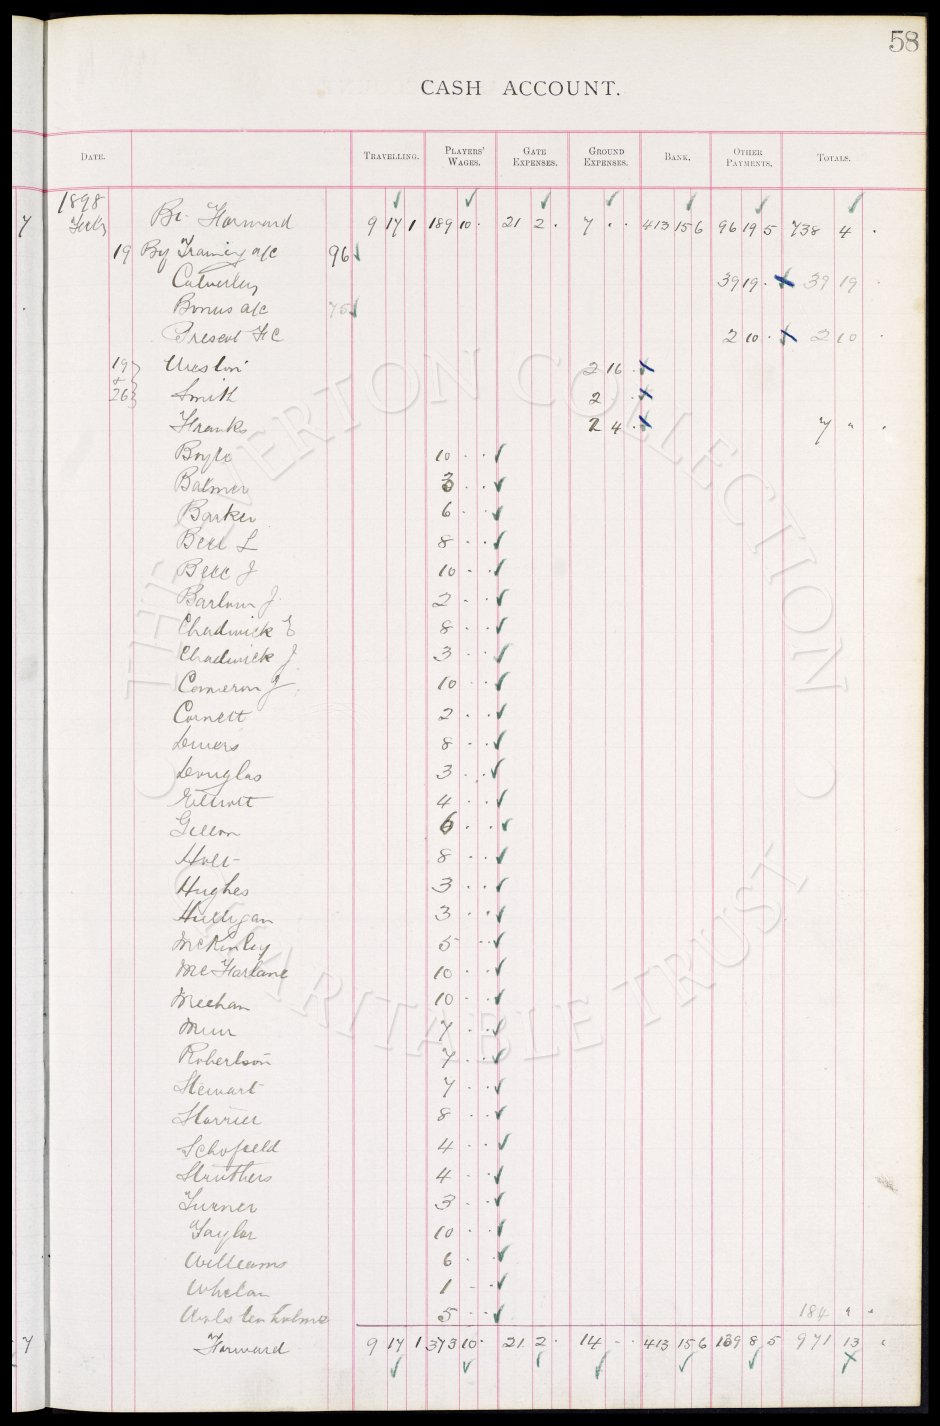 58
CASH ACCOUNT.
DATE. TRAVELLING. PLAYERS' WAGES. GATE EXPENSES. GROUND EXPENSES. BANK. OTHER PAYMENTS. TOTALS.
1898
Feb Bt. Forward 9 17 1 189 10 · 21 2 · 7 · · 413 15 6 96 19 5 738 4 ·
7
19 By Training a/c 96
Calverley 39 19 · 39 19 ·
Bonus a/c 75
Prescot FC 2 10 · 2 10 ·
19 2 16 ·
& 26 Smith 2
Franks 2 4 · 7 " ·
Boyle 10 · ·
Balmer 3 · ·
Barker 6 · ·
Bell L 8 · ·
Bell J 10 · ·
Barlow J. 2 · ·
Chadwick E 8 · ·
Chadwick J 3 · ·
Cameron J 10 · ·
Cornett 2 · ·
Divers 8 · ·
Douglas 3 · ·
Elliott 4 · ·
Gillan 6 · ·
Holt 8 · ·
Hughes 3 · ·
Hulligan 3 · ·
McKinley 5 · ·
McFarlane 10 · ·
Meehan 10 · ·
Muir 7 · ·
Robertson 7 · ·
Stewart 7 · ·
Storrier 8 · ·
Schofield 4 · ·
Struthers 4 · ·
Turner 3 · ·
Taylor 10 · ·
Williams 6 · ·
Whelan 1 · ·
Wolstenholme 5 · · 184 " "
7 Forward 9 17 1 373 10 · 21 2 · 14 · · 413 15 6 139 8 5 971 13 ·
© THE EVERTON COLLECTION CHARITABLE TRUST